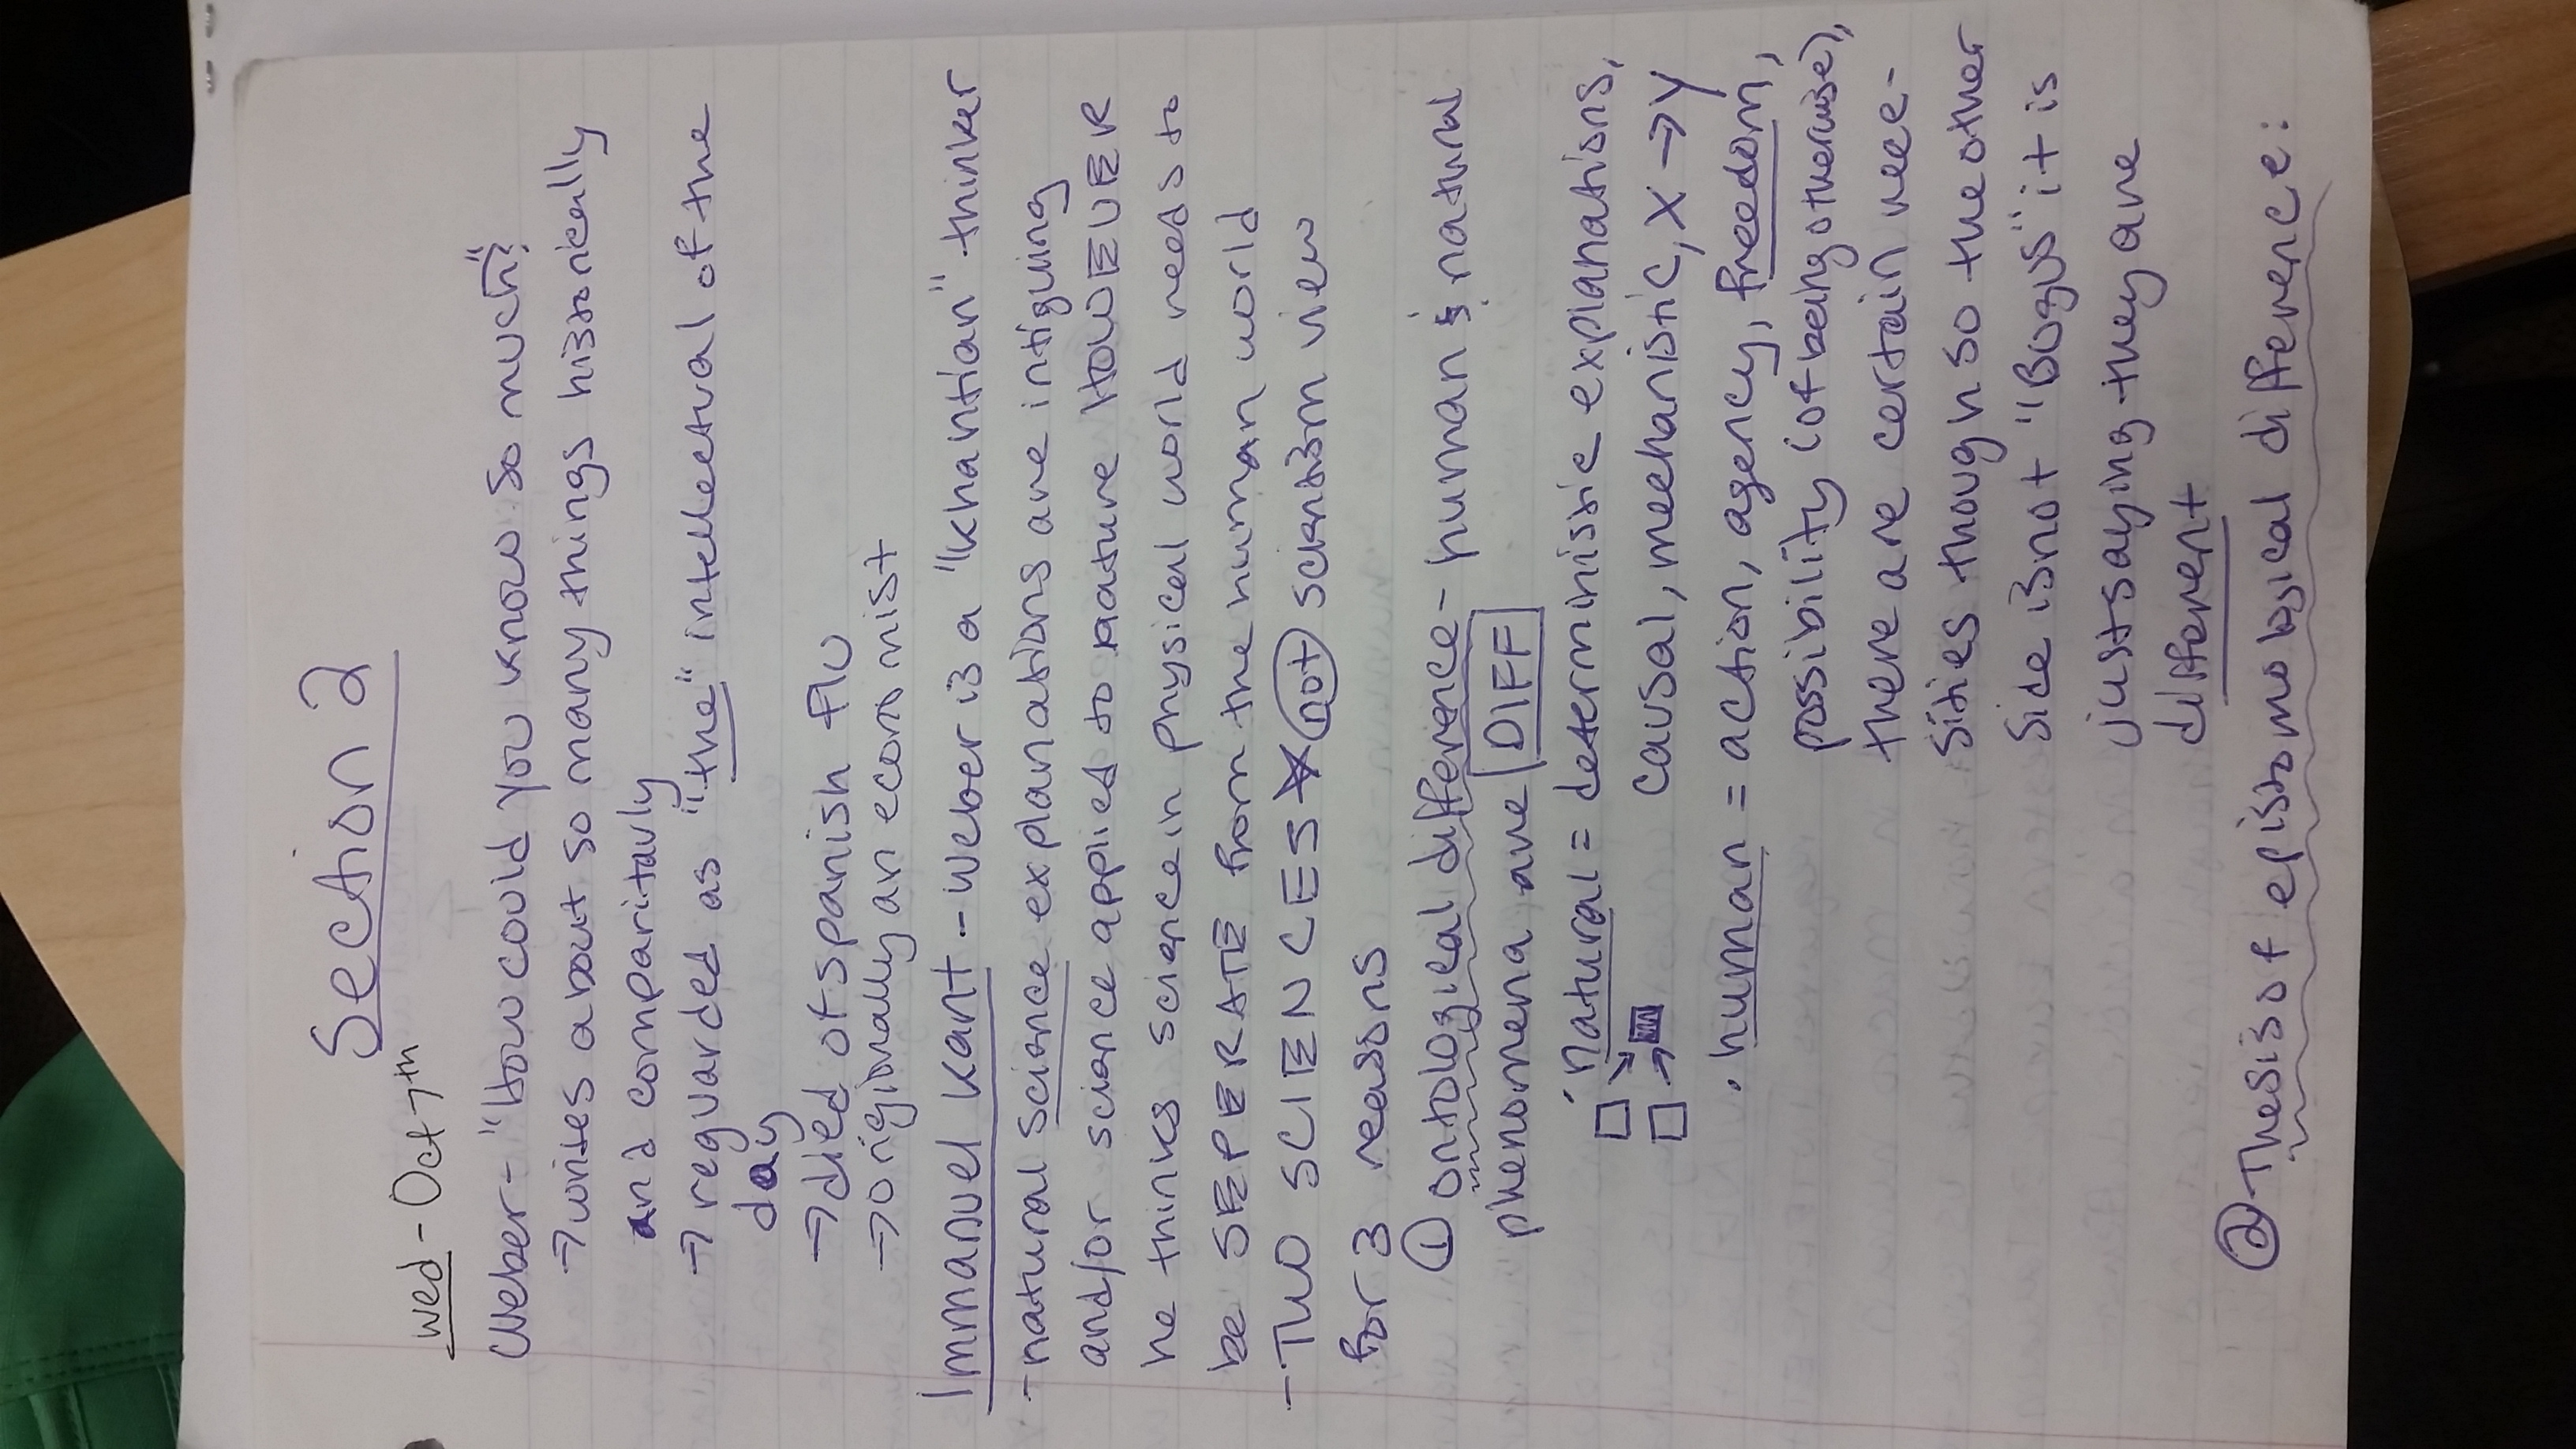 Section 2
wed - Oct 7th
Weber - "how could you know so much"?
→ writes about so many things historically
and comparitavly
→ reguarded as "the" intellectual of the
day
→ died of spanish flu
→ originally an economist
Immanuel Kant - weber is a "khantian" thinker
- natural science explanations are intiguing
and/or science applied to nature HOWEVER
he thinks science in physical world needs to
be SEPERATE from the human world
- TWO SCIENCES * not scientism view
for 3 reasons
① ontological difference - human & natural
phenomena are DIFF
· natural = deterministic explanations,
causal, mechanistic, X → Y
· human = action, agency, freedom,
possibility (of being otherwise),
there are certain nece-
sities though so the other
side is not "Bogus" it is
just saying they are
different
② Thesis of epistomological difference: